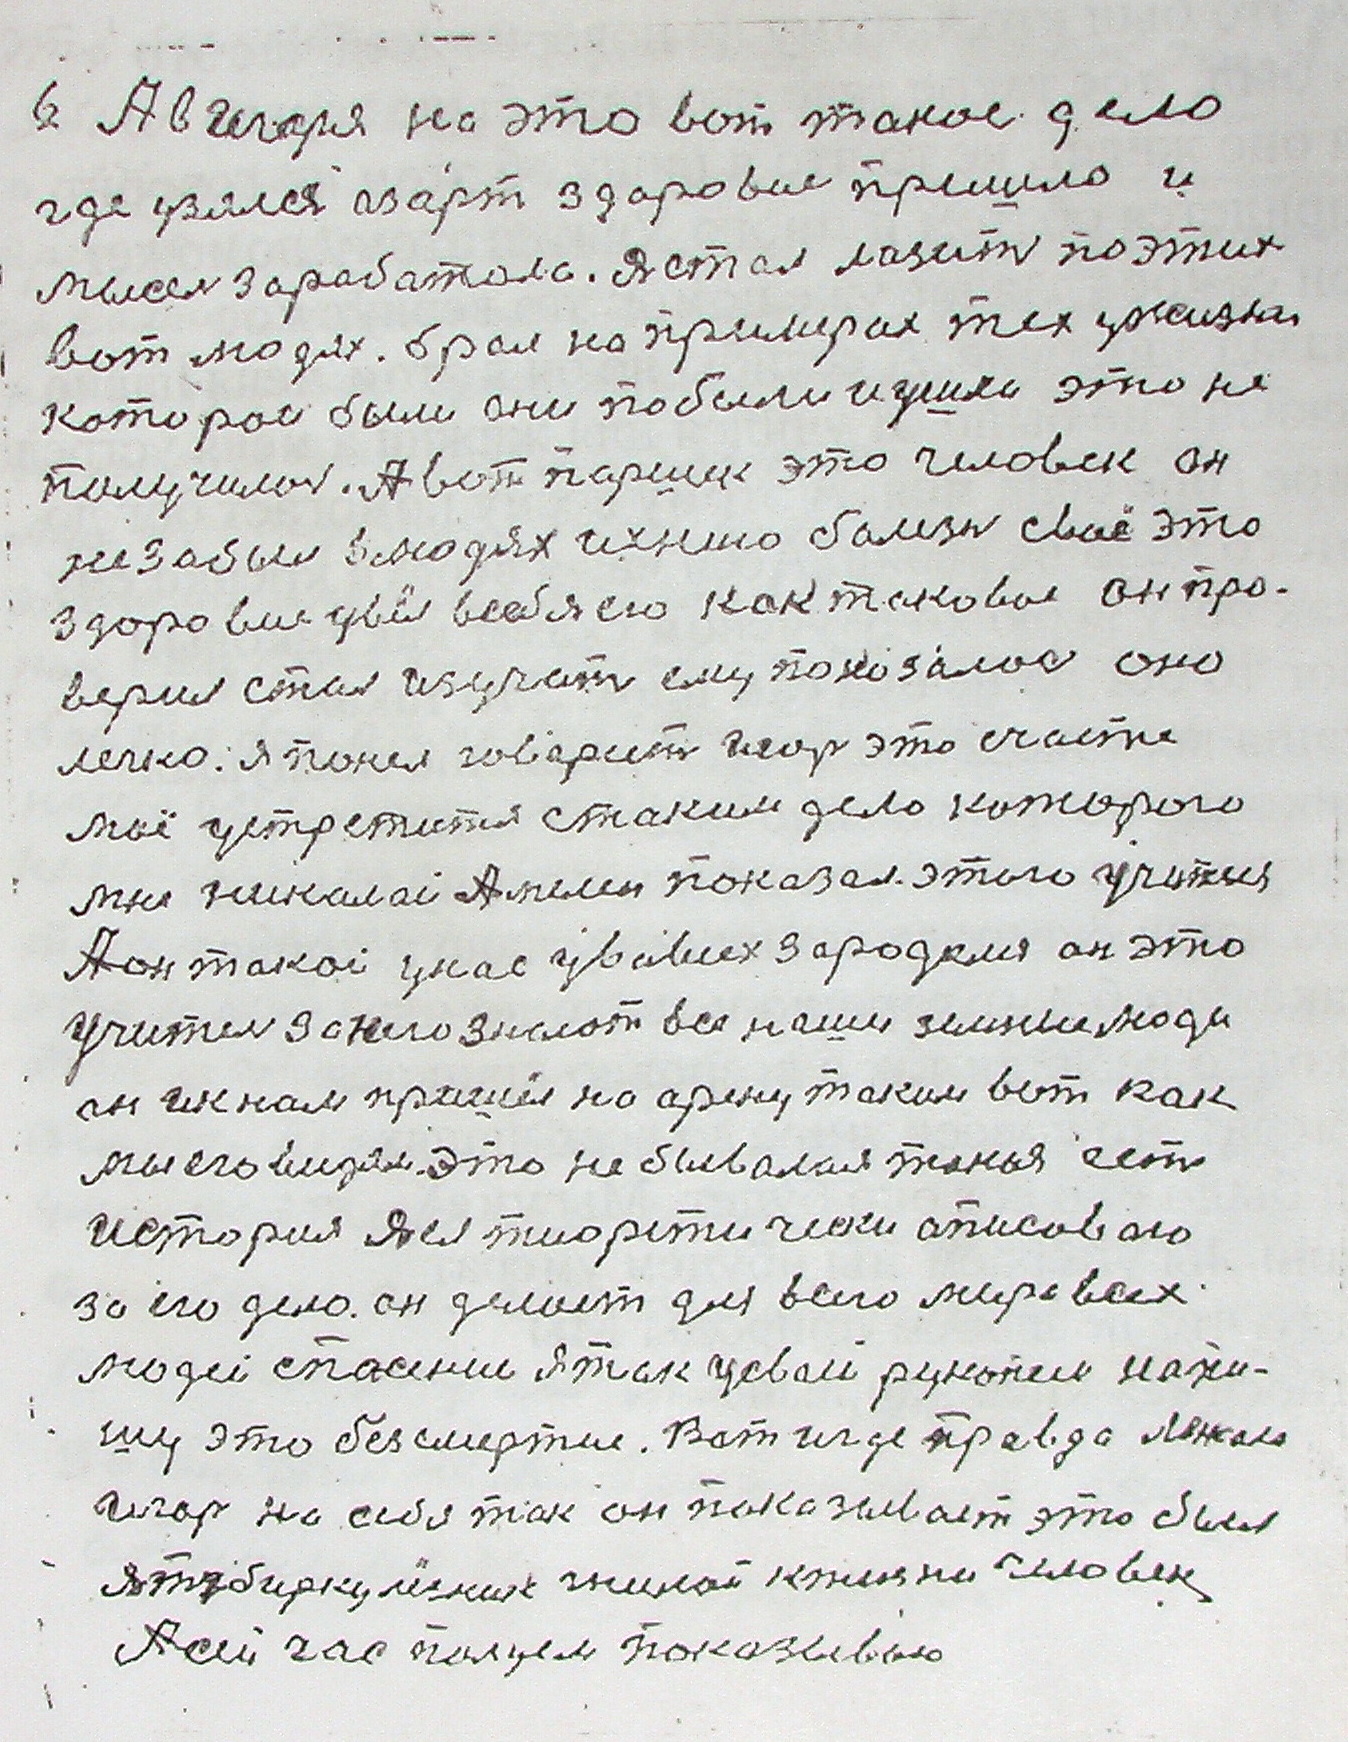 6 А в Игаря на это вот такое дело
где узялся азарт здоровие пришло и
мысел зарабатола. Я стал лазить по этих
вот людях. брал на примерах тех ужизни
которои были они побыли и ушли это не
получилос. А вот паршик это человек он
незабыл в людях ихнию болезн своё это
здоровие увёл всебя его как таковое он про-
верил стал изучать ему показалос оно
легко. я понял говарить Игор это счастие
моё устретится стаким дело которого
мне николаі Амелин показал. этого учителя
Аон такоі унас увавших зародился он это
Учител занего знают все наши земнии люди
он ик нам пришёл на арену таким вот как
мы его видям. это не бывалая такая ест
история Я ея тиоретически описоваю
за его дело. он делоит для всего мира всех
людеі спасение я так усваеі рукописи напи-
шу это безсмертие. Вот игде правда ляжала
игор на себя так он паказываит это был
я тубиркулёзник гнилоі кжизни человек
А сей час полцем показываю